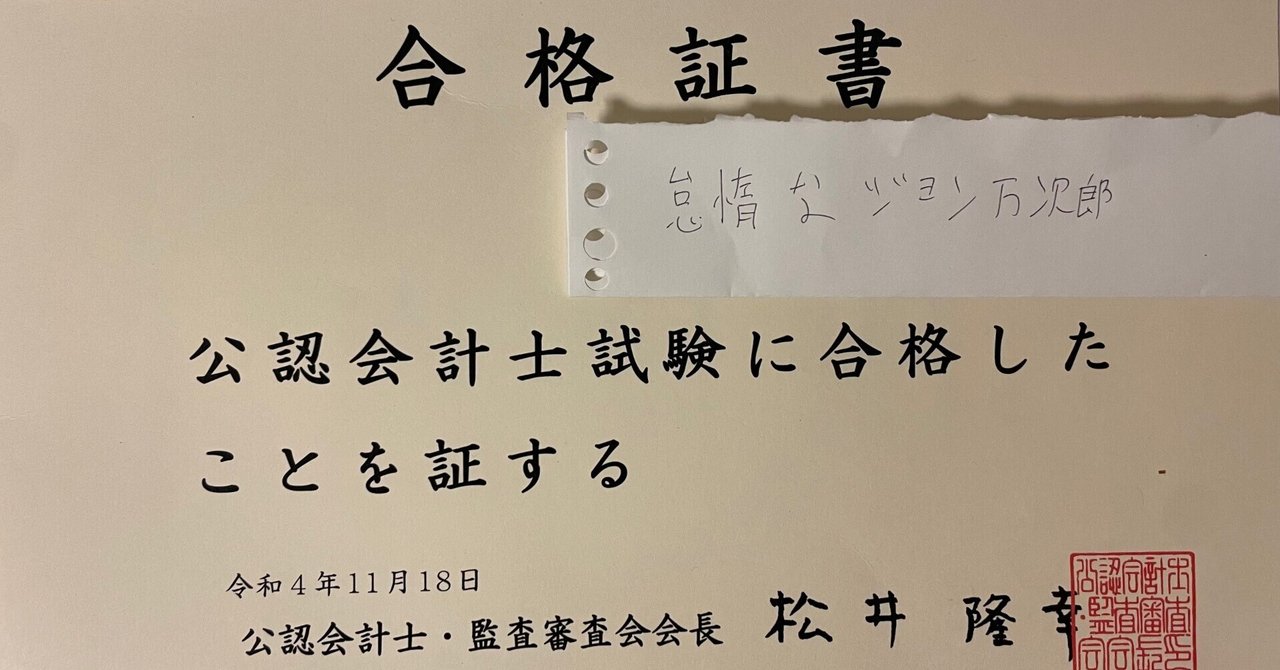 合格証書
怠惰なジョン万次郎
公認会計士試験に合格した
ことを証する
令和4年11月18日
公認会計士・監査審査会会長 松井 隆幸